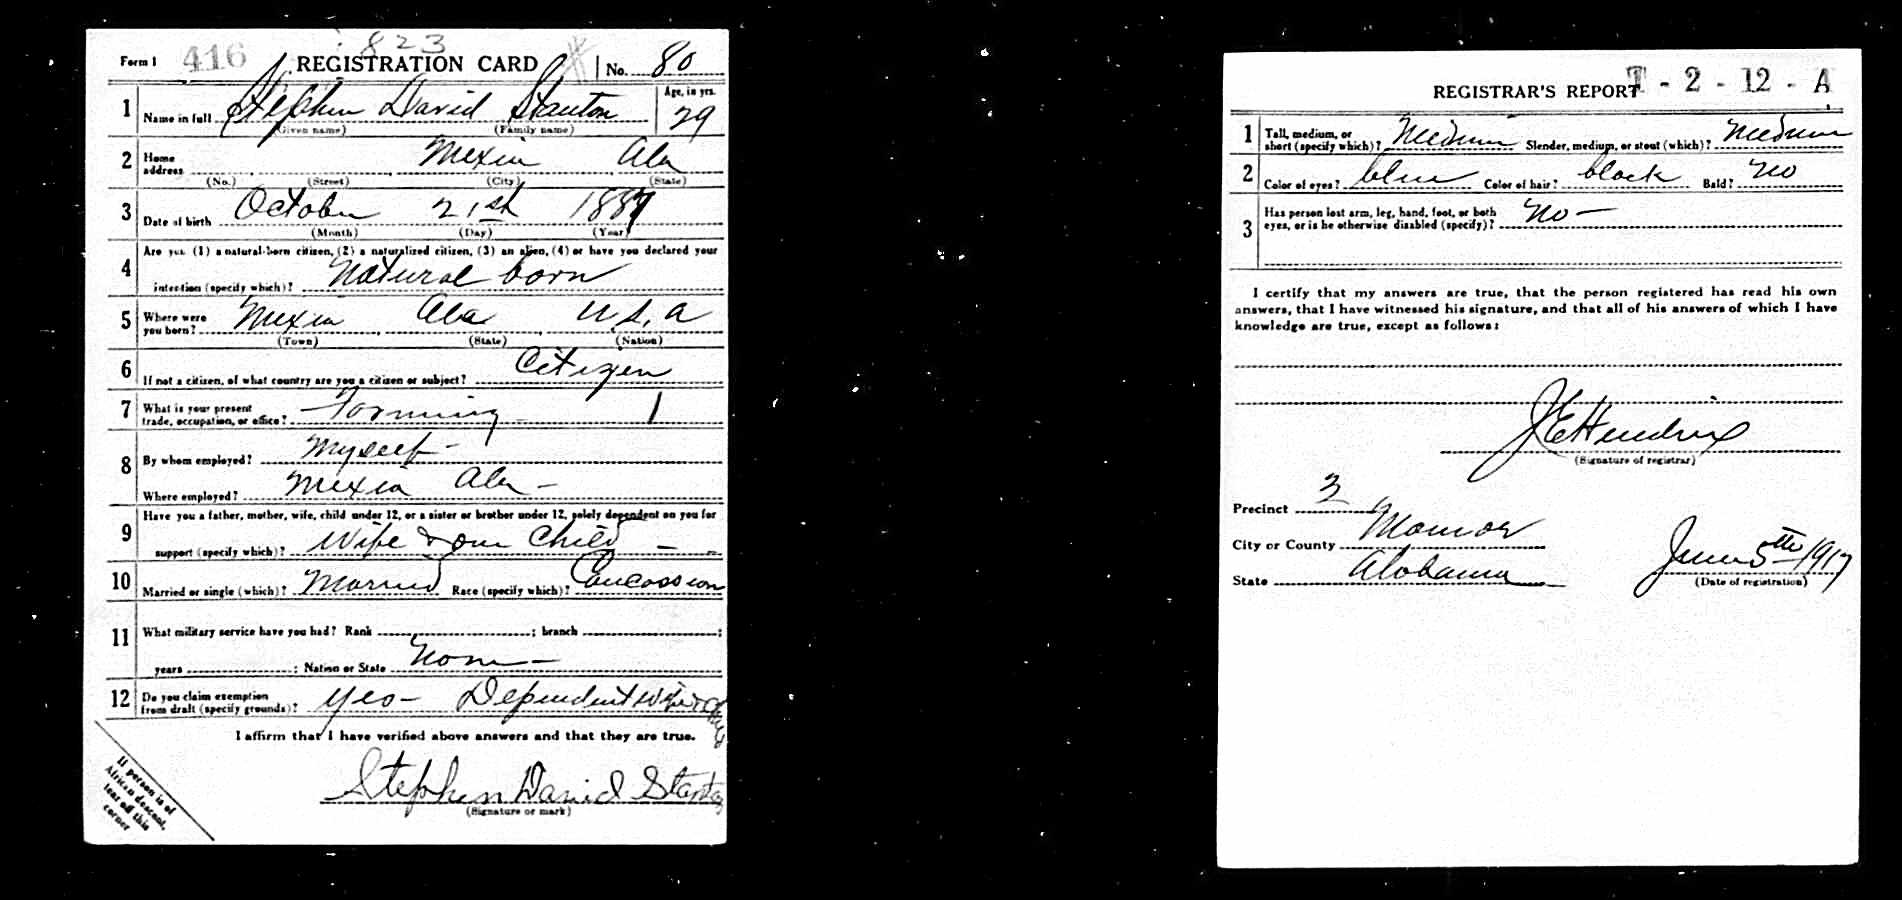 823
Form 1 416 REGISTRATION CARD No. 80
1 Name in full Stephen David Stanton Age, in yrs. 29
(Given name) (Family name)
2 Home address Mexia Ala
(No.) (Street) (City) (State)
3 Date of birth October 21st 1887
(Month) (Day) (Year)
4 Are you (1) a natural-born citizen, (2) a naturalized citizen, (3) an alien, (4) or have you declared your
intention (specify which)? Natural born
5 Where were you born? Mexia Ala U.S.A
(Town) (State) (Nation)
6 If not a citizen, of what country are you a citizen or subject? Citizen
7 What is your present trade, occupation, or office? Farming 1
8 By whom employed? Myself -
Where employed? Mexia Ala -
9 Have you a father, mother, wife, child under 12, or a sister or brother under 12, solely dependent on you for
support (specify which)? Wife & one Child -
10 Married or single (which)? Married Race (specify which)? Caucassion
11 What military service have you had? Rank ; branch ;
years ; Nation or State None -
12 Do you claim exemption from draft (specify grounds)? yes - Dependent wife & child
I affirm that I have verified above answers and that they are true.
Stephen David Stanton
(Signature or mark)
If person is of
African descent,
tear off this
corner
REGISTRAR'S REPORT 1 - 2 - 12 - A
1 Tall, medium, or short (specify which)? Medium Slender, medium, or stout (which)? Medium
2 Color of eyes? blue Color of hair? black Bald? No
3 Has person lost arm, leg, hand, foot, or both
eyes, or is he otherwise disabled (specify)? No -
I certify that my answers are true, that the person registered has read his own
answers, that I have witnessed his signature, and that all of his answers of which I have
knowledge are true, except as follows:
J E Hendrix
(Signature of registrar)
Precinct 3
City or County Monroe
State Alabama June 5th 1917
(Date of registration)